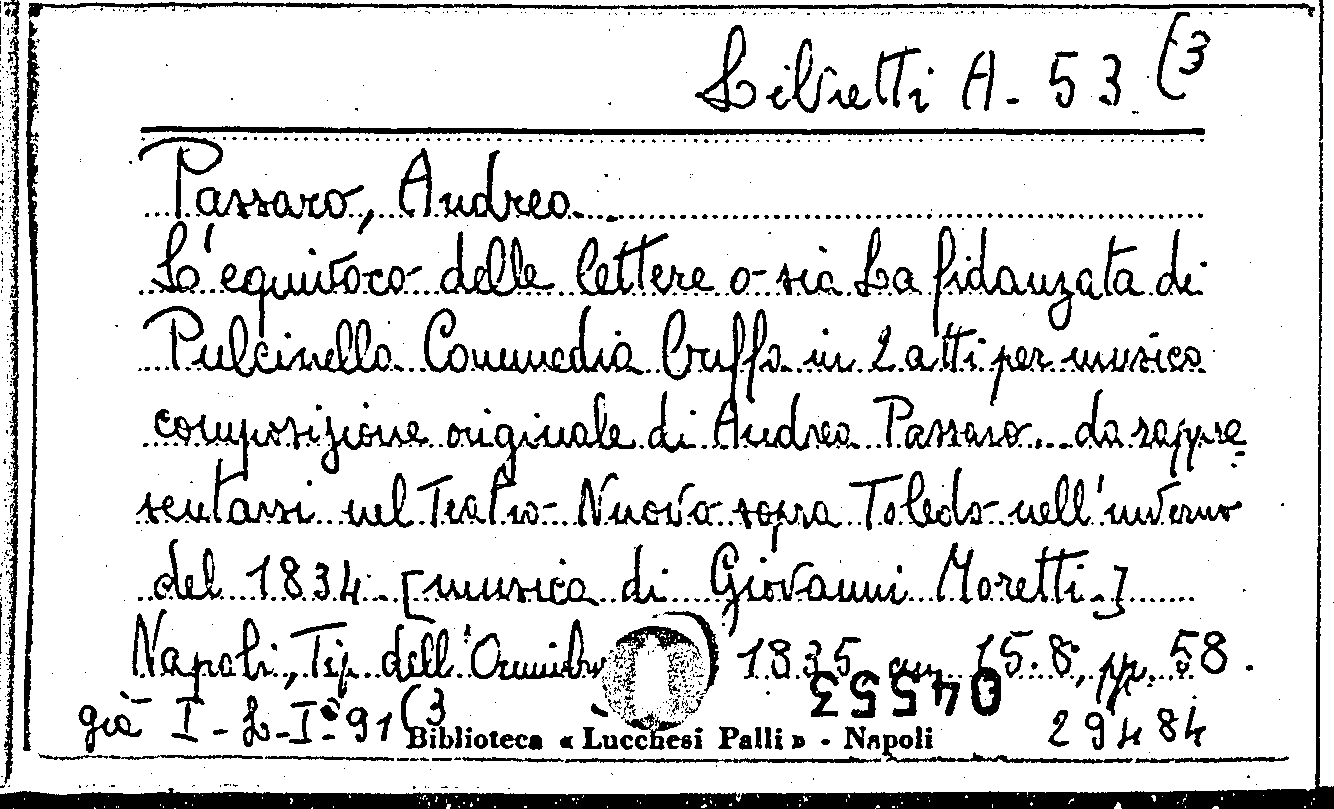 Libretti A. 53 (3
Passaro, Andrea.
L'equivoco delle lettere o sia La fidanzata di
Pulcinella. Commedia buffa in 2 atti per musica
composizione originale di Andrea Passaro... da rappre
sentarsi nel Teatro Nuovo sopra Toledo nell'inverno
del 1834. [musica di Giovanni Moretti.]
Napoli, Tip. dell' 1835 cm. 15.8, pp. 58.
04553
già I-L-I°-91 (3
29484
Biblioteca « Lucchesi Palli » - Napoli